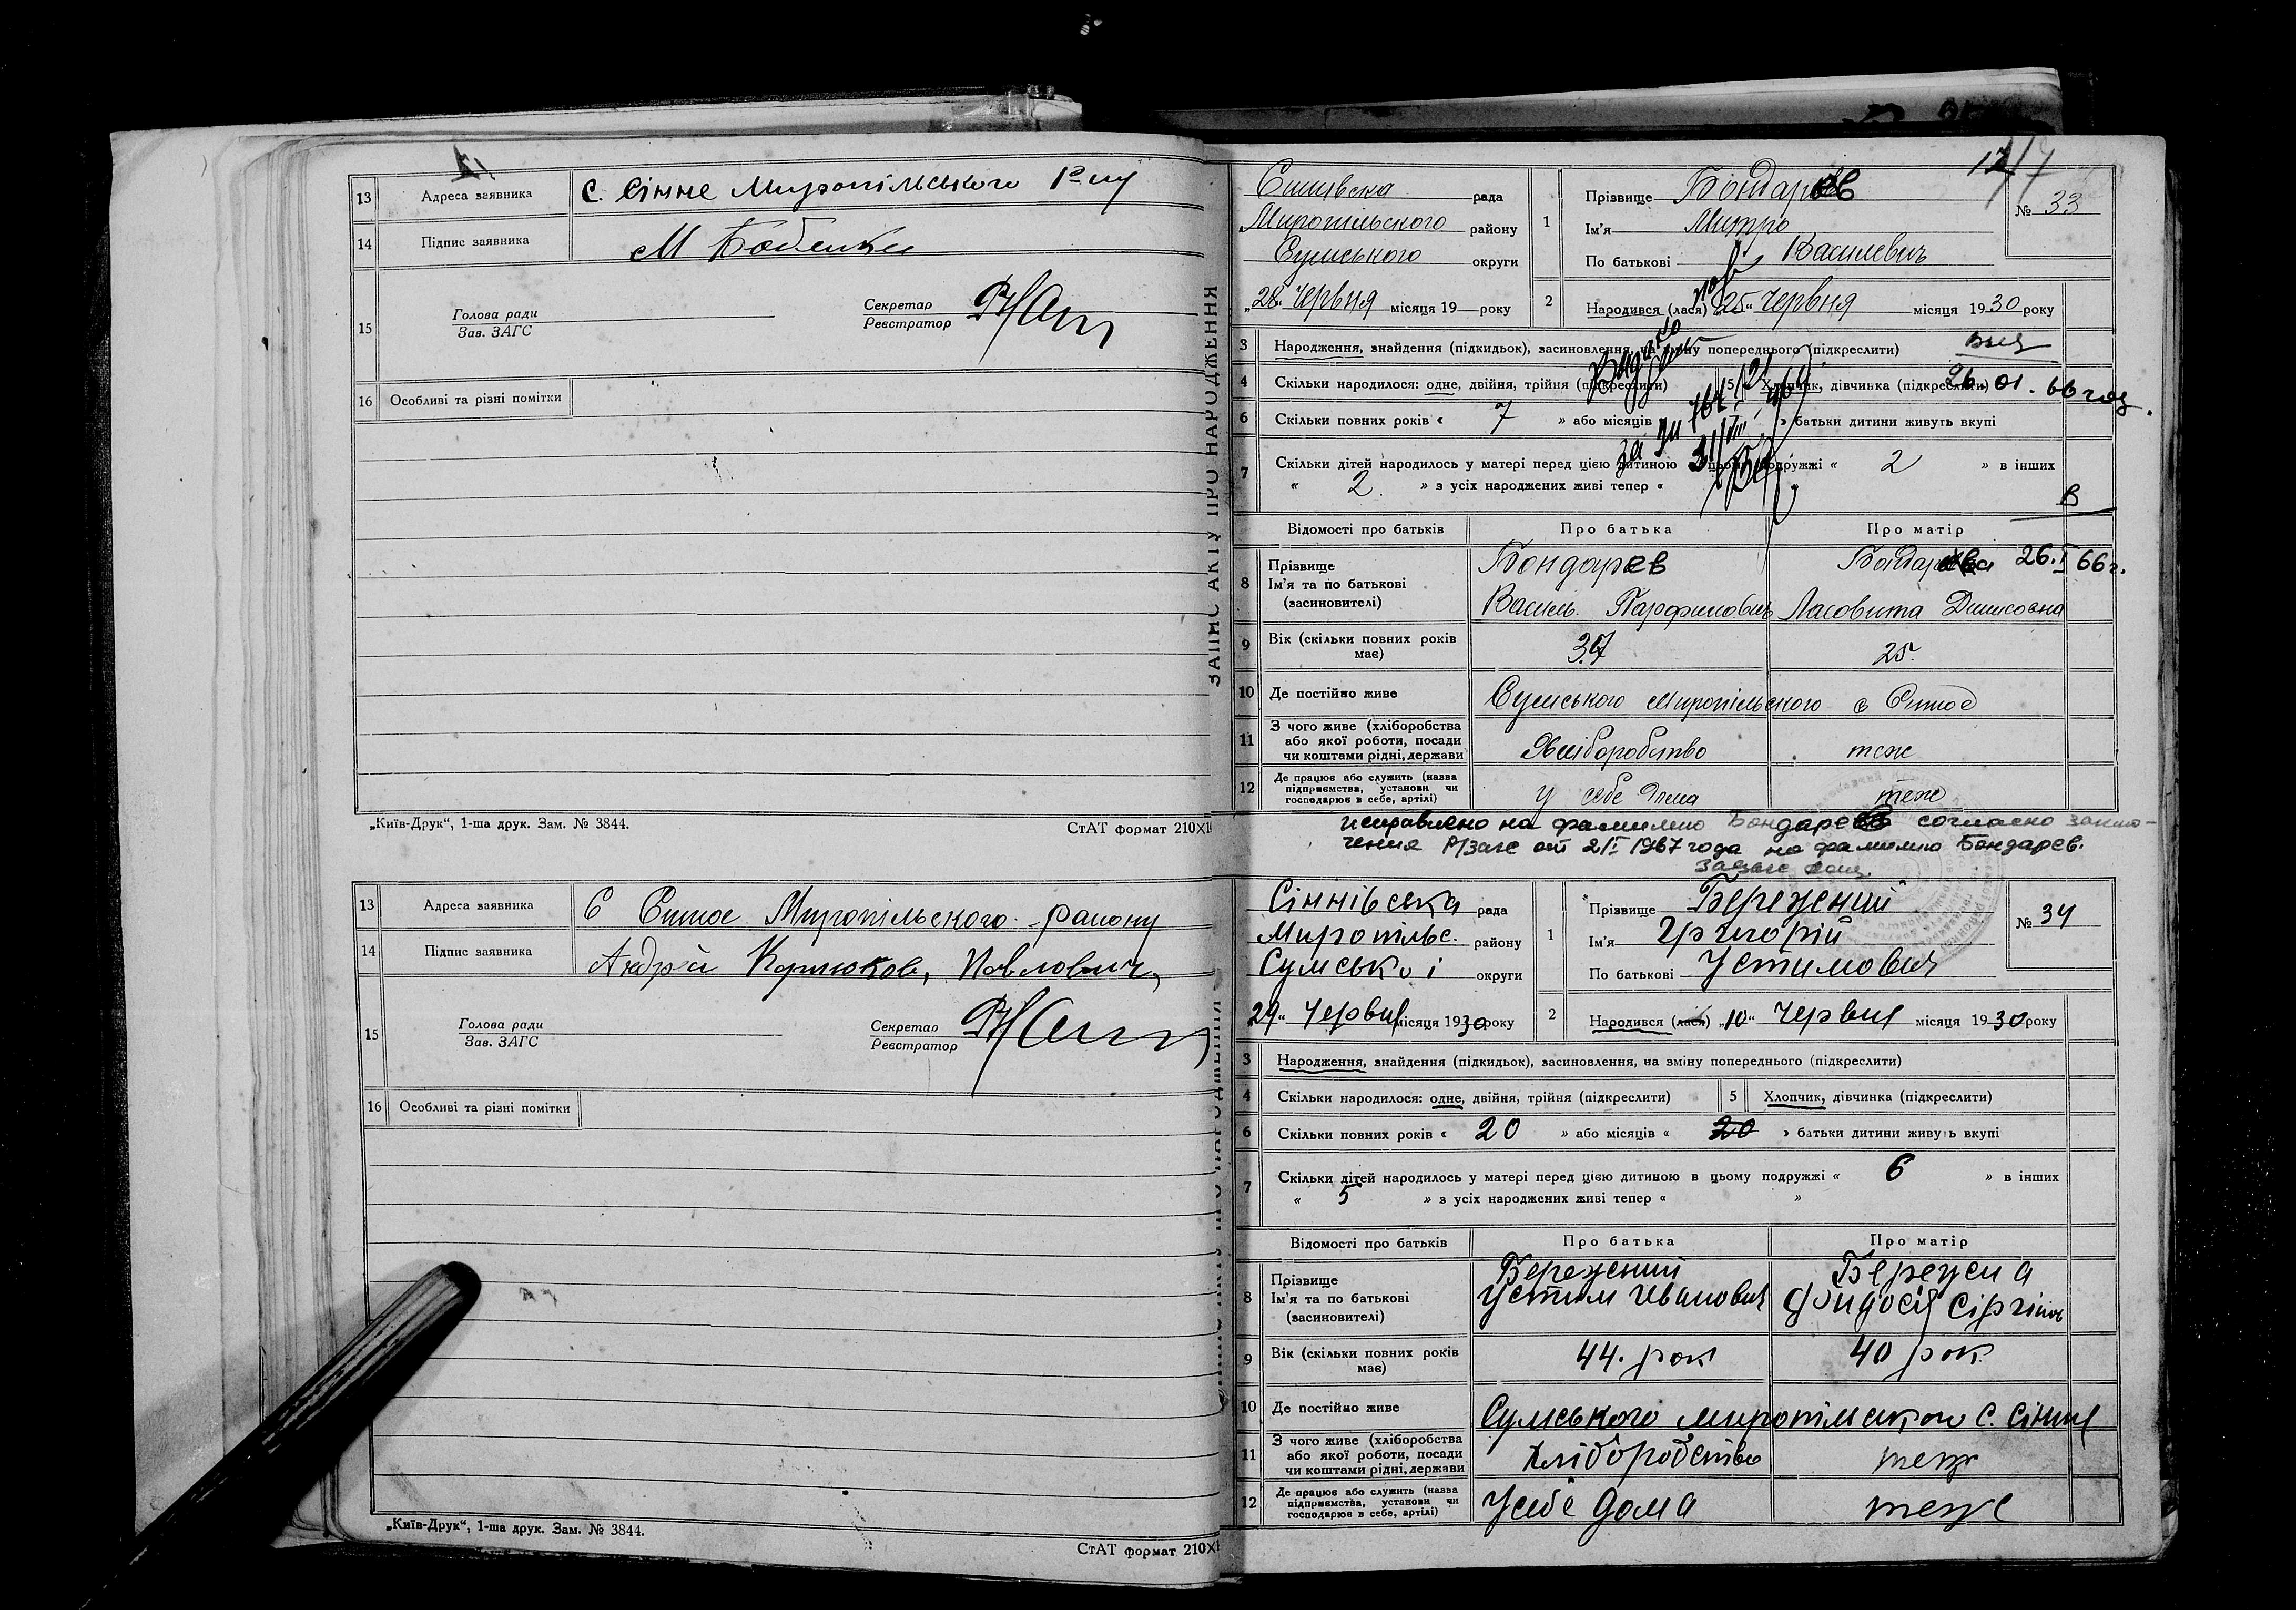 13 Адреса заявника с. Сінне Миропільського р-ну
14 Підпис заявника М Бобенки
15 Голова ради
Зав. ЗАГС
Секретар
Реєстратор
16 Особливі та різні помітки
„Київ-Друк“, 1-ша друк. Зам. № 3844.
СтАТ формат 210×1
13 Адреса заявника С Синное Миропільського району
14 Підпис заявника Андрей Павлович
15 Голова ради
Зав. ЗАГС
Секретар
Реєстратор
16 Особливі та різні помітки
„Київ-Друк“, 1-ша друк. Зам. № 3844.
СтАТ формат 210×1
ЗАПИС АКТУ ПРО НАРОДЖЕННЯ
рада
Миропільського району
Сумського округи
„28“ Червня місяця 19 року
1 Прізвище Бондарев
Ім'я Митро
По батькові Василевич
№ 33
2 Народився (лася) „25“ Червня місяця 1930 року
3 Народження, знайдення (підкидьок), засиновлення, на зміну попереднього (підкреслити)
4 Скільки народилося: одне, двійня, трійня (підкреслити) 5 Хлопчик, дівчинка (підкреслити)
26.01.66 год.
6 Скільки повних років « 7 » або місяців » батьки дитини живуть вкупі
7 Скільки дітей народилось у матері перед цією дитиною в цьому подружжі « 2 » в інших
« 2 » з усіх народжених живі тепер «
Відомості про батьків Про батька Про матір
8 Прізвище Бондарев Бондарева 26.I 66г.
Ім'я та по батькові
(засиновителі) Василь Парфинович Денисовна
9 Вік (скільки повних років має) 37 25
10 Де постійно живе Сумського Миропільського с Синное
11 З чого живе (хліборобства або якої роботи, посади чи коштами рідні, держави Хліборобство теж
12 Де працює або служить (назва підприємства, установи чи господарює в себе, артілі) у себе дома теж
исправлено на фамилию Бондарев согласно заклю-
чения Р/загс от 2/I 1967 года на фамилию Бондарев.
Сіннівська рада
Миропільс. району
Сумської округи
29 „ Червня місяця 1930 року
1 Прізвище Бережний
Ім'я Григорій
По батькові Устимович
№ 34
2 Народився (лася) „10“ Червня місяця 1930 року
3 Народження, знайдення (підкидьок), засиновлення, на зміну попереднього (підкреслити)
4 Скільки народилося: одне, двійня, трійня (підкреслити) 5 Хлопчик, дівчинка (підкреслити)
6 Скільки повних років « 20 » або місяців « 20 » батьки дитини живуть вкупі
7 Скільки дітей народилось у матері перед цією дитиною в цьому подружжі « 6 » в інших
« 5 » з усіх народжених живі тепер « »
Відомості про батьків Про батька Про матір
8 Прізвище Бережний Бережна
Ім'я та по батькові Устим Іванович
(засиновителі)
9 Вік (скільки повних років має) 44. рок 40 рок.
10 Де постійно живе Сумського С. Сінне
11 З чого живе (хліборобства або якої роботи, посади чи коштами рідні, держави Хліборобство теж
12 Де працює або служить (назва підприємства, установи чи господарює в себе, артілі) У себе дома теж